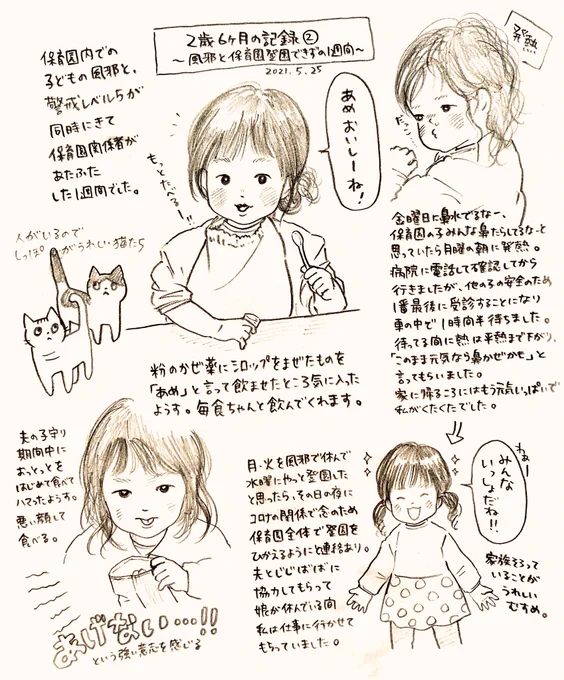 2歳6ヶ月の記録②
〜風邪と保育園登園できずの1週間〜
2021.5.25
保育園内での
子どもの風邪と、
警戒レベル5が
同時にきて
保育園関係者が
あたふた
した1週間でした。
もっとたべる〜!!
あめおいしーね!
発熱
だっこ
人がいるので
しっぽがうれしい猫たち
粉のかぜ薬にシロップをまぜたものを
「あめ」と言って飲ませたところ気に入った
ようす。毎食ちゃんと飲んでくれます。
金曜日に鼻水でるなー、
保育園の子みんな鼻たらしてるなーと
思っていたら月曜の朝に発熱。
病院に電話して確認してから
行きましたが、他の子の安全のため
1番最後に受診することになり
車の中で1時間半待ちました。
待ってる間に熱は平熱まで下がり、
「このまま元気なら鼻かぜかぜ」と
言ってもらいました。
家に帰るころにはもう元気いっぱいで
私がくたくたでした。
夫の子守り
期間中に
おっとっとを
はじめて食べて
ハマったようす。
悪い顔して
食べる。
あげない…!!
という強い意志を感じる
月・火を風邪で休んで
水曜にやっと登園した
と思ったら、その日の夜に
コロナの関係で念のため
保育園全体で登園を
ひかえるようにと連絡あり。
夫とじじばばに
協力してもらって
娘が休んでいる間
私は仕事に行かせて
もらっていました。
わぁー
みんな
いっしょだね!!
家族そろって
いることが
うれしい
むすめ。